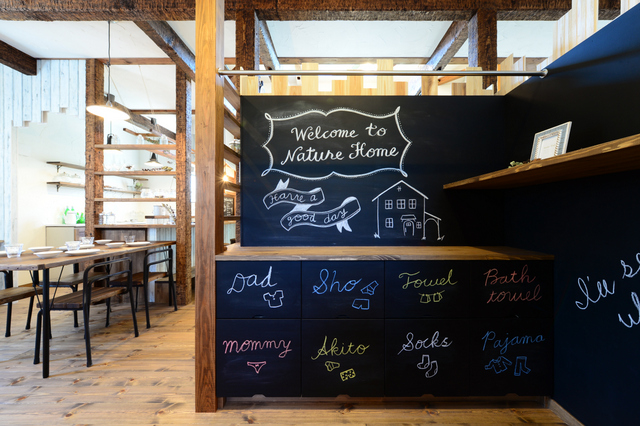 Welcome to
Nature Home
Have a
good day
Dad
Sho
Towel
Bath
towel
mommy
Akito
Socks
Pajama
I'll se